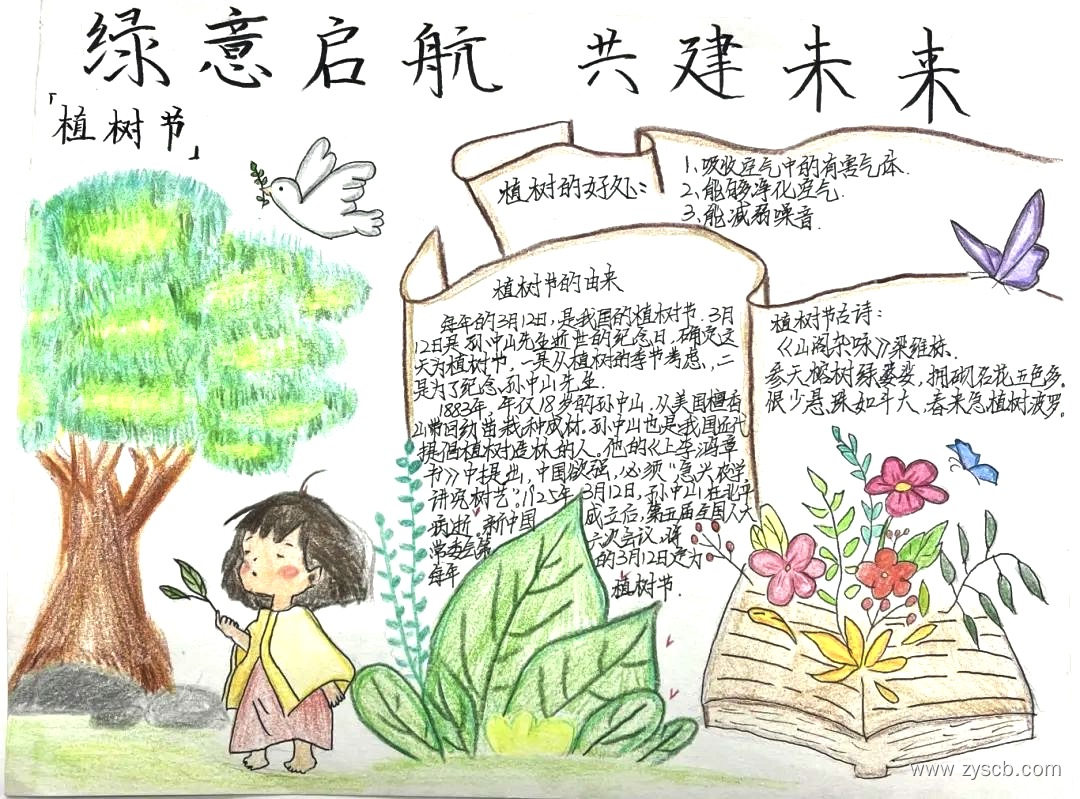 绿意启航 共建未来
「植树节」
植树的好处:
1、吸收空气中的有害气体.
2、能够净化空气.
3、能减弱噪音.
植树节的由来
每年的3月12日,是我国的植树节.3月
12日是孙中山先生逝世的纪念日,确定这
天为植树节,一是从植树的季节考虑,二
是为了纪念孙中山先生.
1883年,年仅18岁的孙中山,从美国檀香
山带回幼苗栽种成材.孙中山也是我国近代
提倡植树造林的人。他的《上李鸿章
书》中提出,中国欲强,必须"急兴农学,
讲究树艺".1925年3月12日,孙中山在北平
病逝.新中国成立后,第五届全国人大
常委会第六次会议,将
每年的3月12日定为
植树节.
植树节古诗:
《山阁杂咏》梁维栋.
参天榕树绿婆娑,拥砌石花五色多.
很少悬珠如斗大,春来急植树波罗.
www.zyscb.com